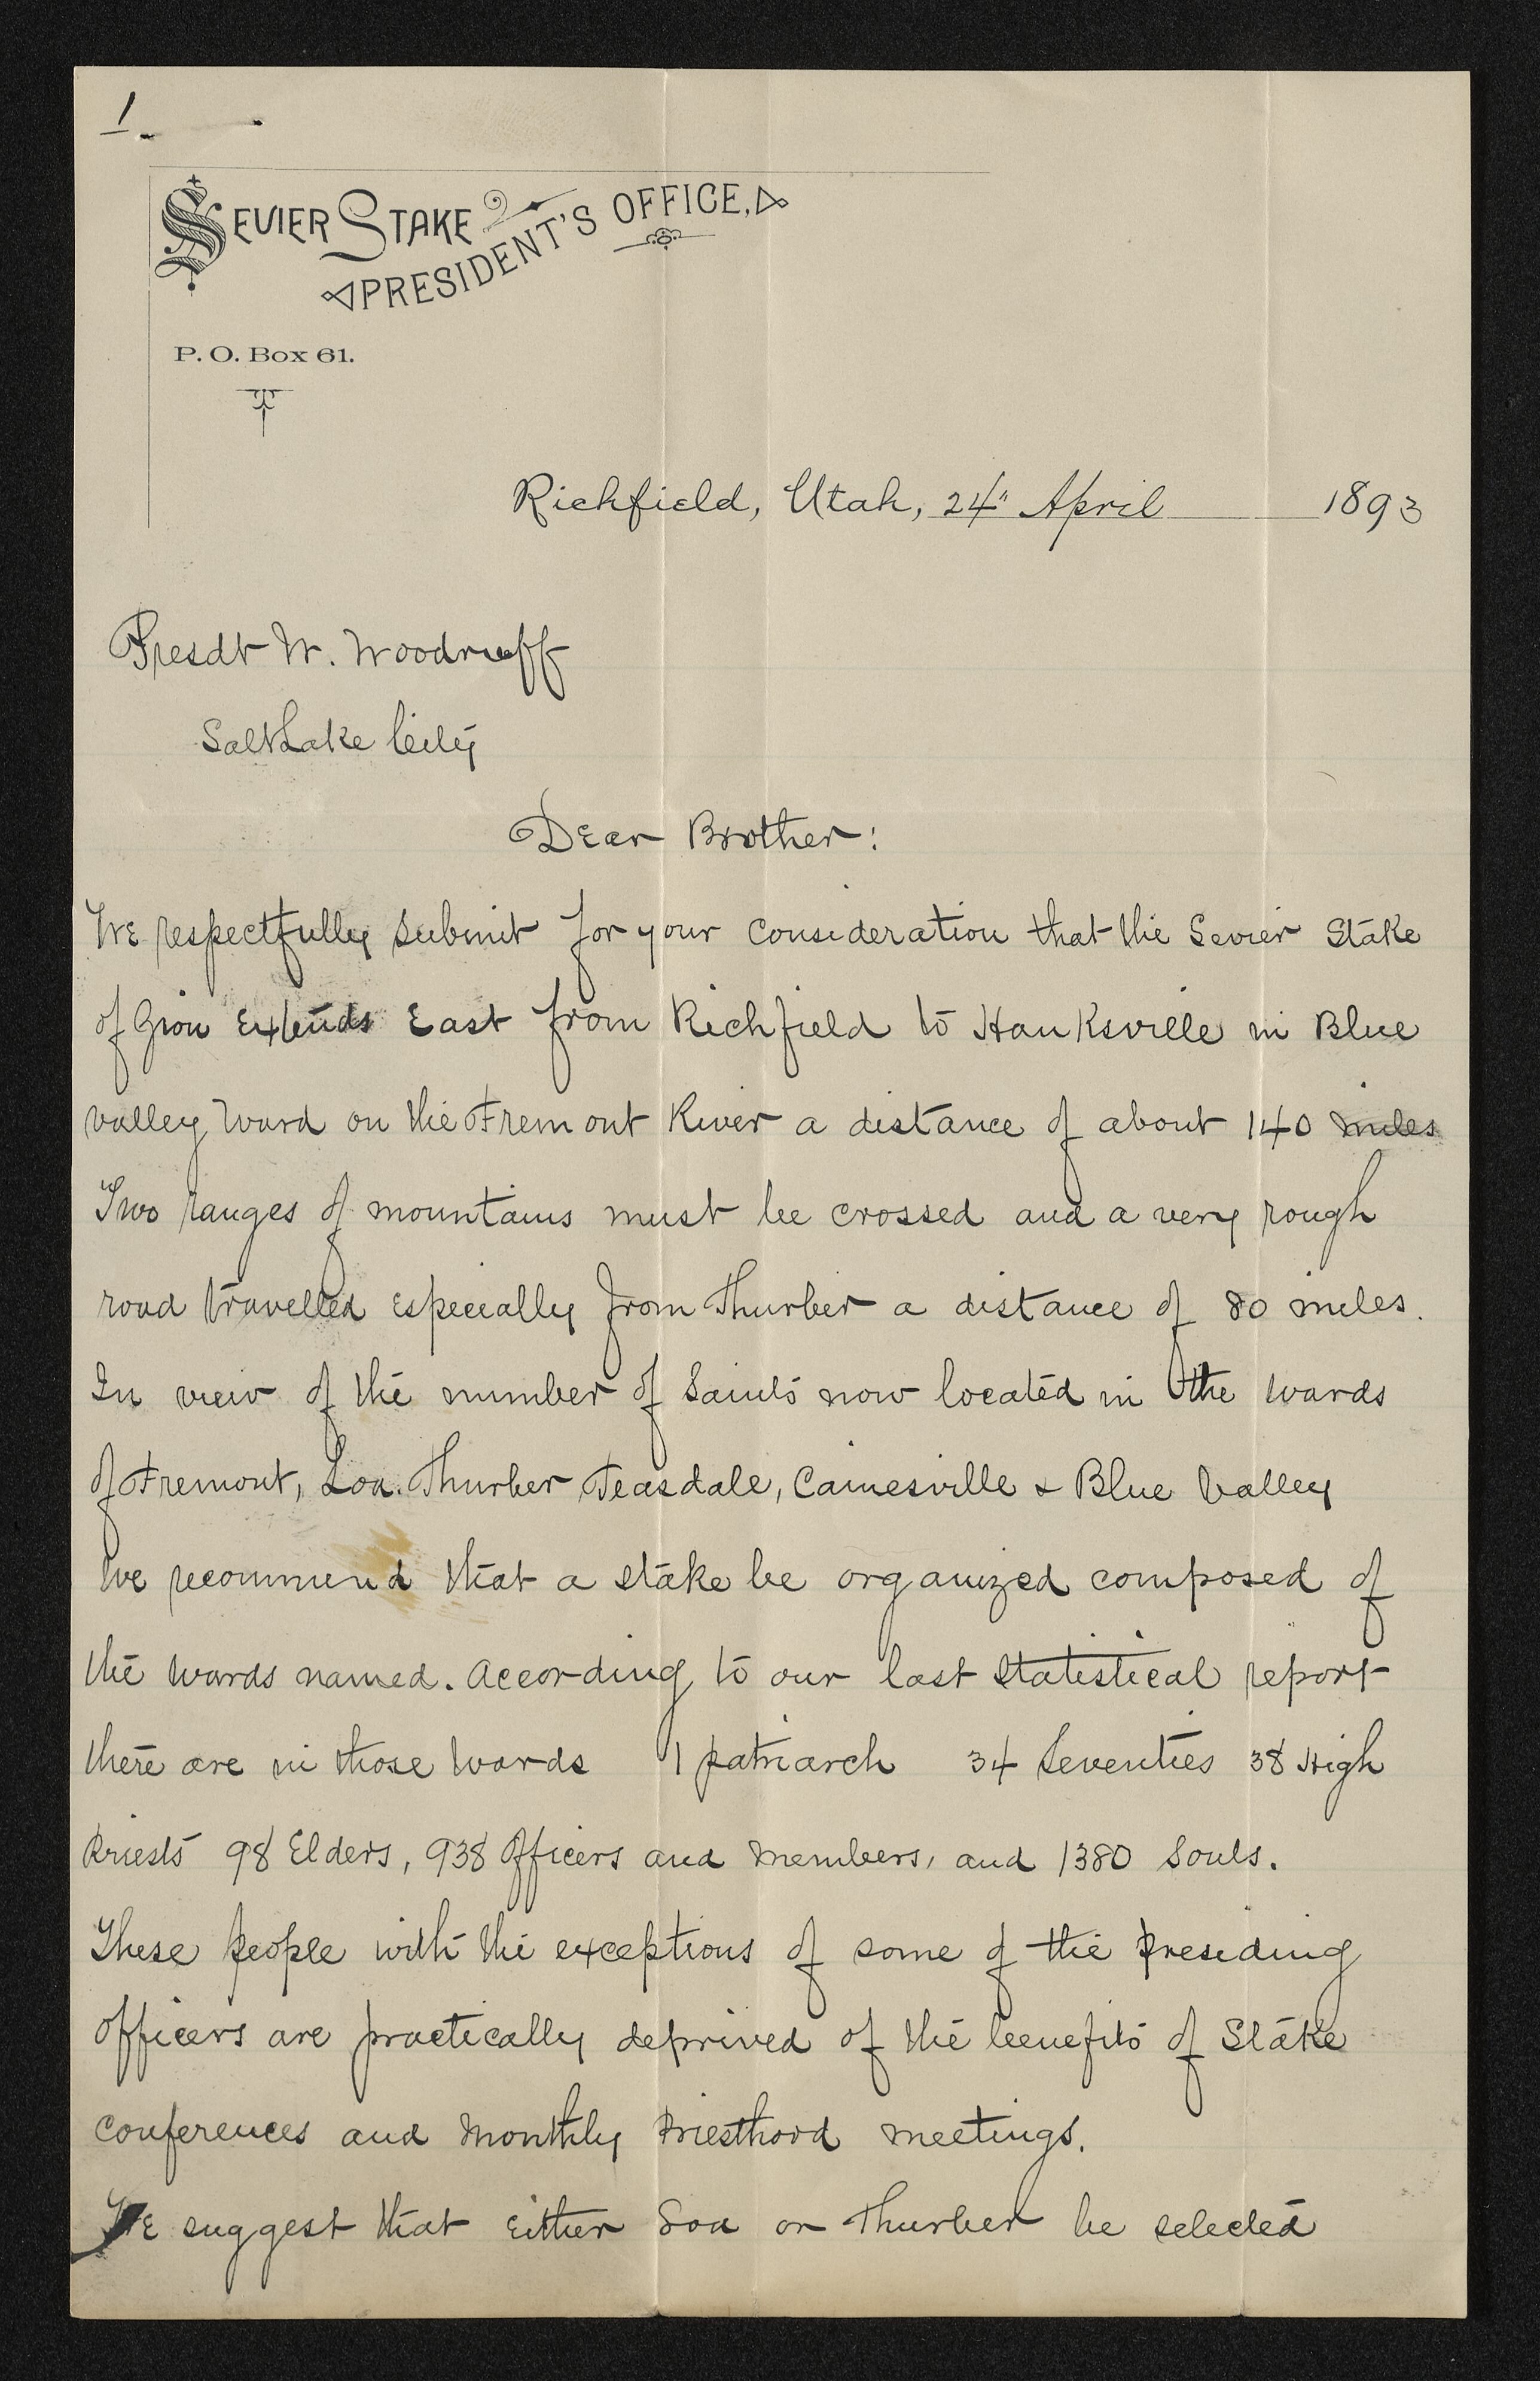 1.
SEVIER STAKE
PRESIDENT'S OFFICE,
P. O. Box 61.
Richfield, Utah, 24" April 1893
Presdt W. Woodruff
Salt Lake City
Dear Brother:
We respectfully submit for your consideration that the Sevier Stake
of Zion extends East from Richfield to Hanksville in Blue
valley Ward on the Fremont River a distance of about 140 miles
Two ranges of mountains must be crossed and a very rough
road travelled especially from Thurber a distance of 80 miles.
In view of the number of Saints now located in the wards
of Fremont, Loa. Thurber Teasdale, Cainesville & Blue Valley
We recommend that a stake be organized composed of
the wards named. According to our last statistical report
there are in those wards 1 patriarch 34 Seventies 38 High
Priests 98 Elders, 938 Officers and Members, and 1380 Souls.
These people with the exceptions of some of the presiding
officers are practically deprived of the benefits of Stake
conferences and Monthly Priesthood meetings.
We suggest that either Loa or Thurber be selected